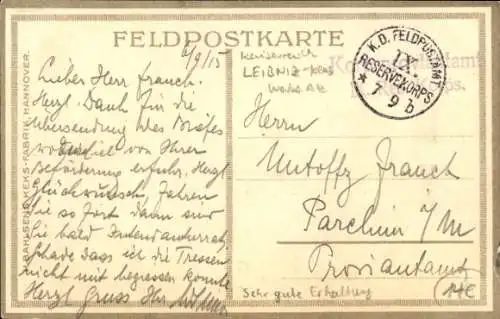 FELDPOSTKARTE
6/9/15
Lieber Herr Franck.
Herzl. Dank für die
Übersendung des Briefes
von Ihrer
Beförderung erfuhr. Herzl
Glückwunsch
Sie so fort dann sind
Sie bald
Schade dass ich die Tressen
nicht mit begiessen konnte
Herzl Gruss Ihr
BAHLSENS KEKS-FABRIK HANNOVER.
LEIBNIZ-Keks
K.D. FELDPOSTAMT
IX.
RESERVEKORPS
* 7 9 b
Herrn
Untoffz Franck
Parchim i/M
Proviantamt
Sehr gute Erhaltung
14€